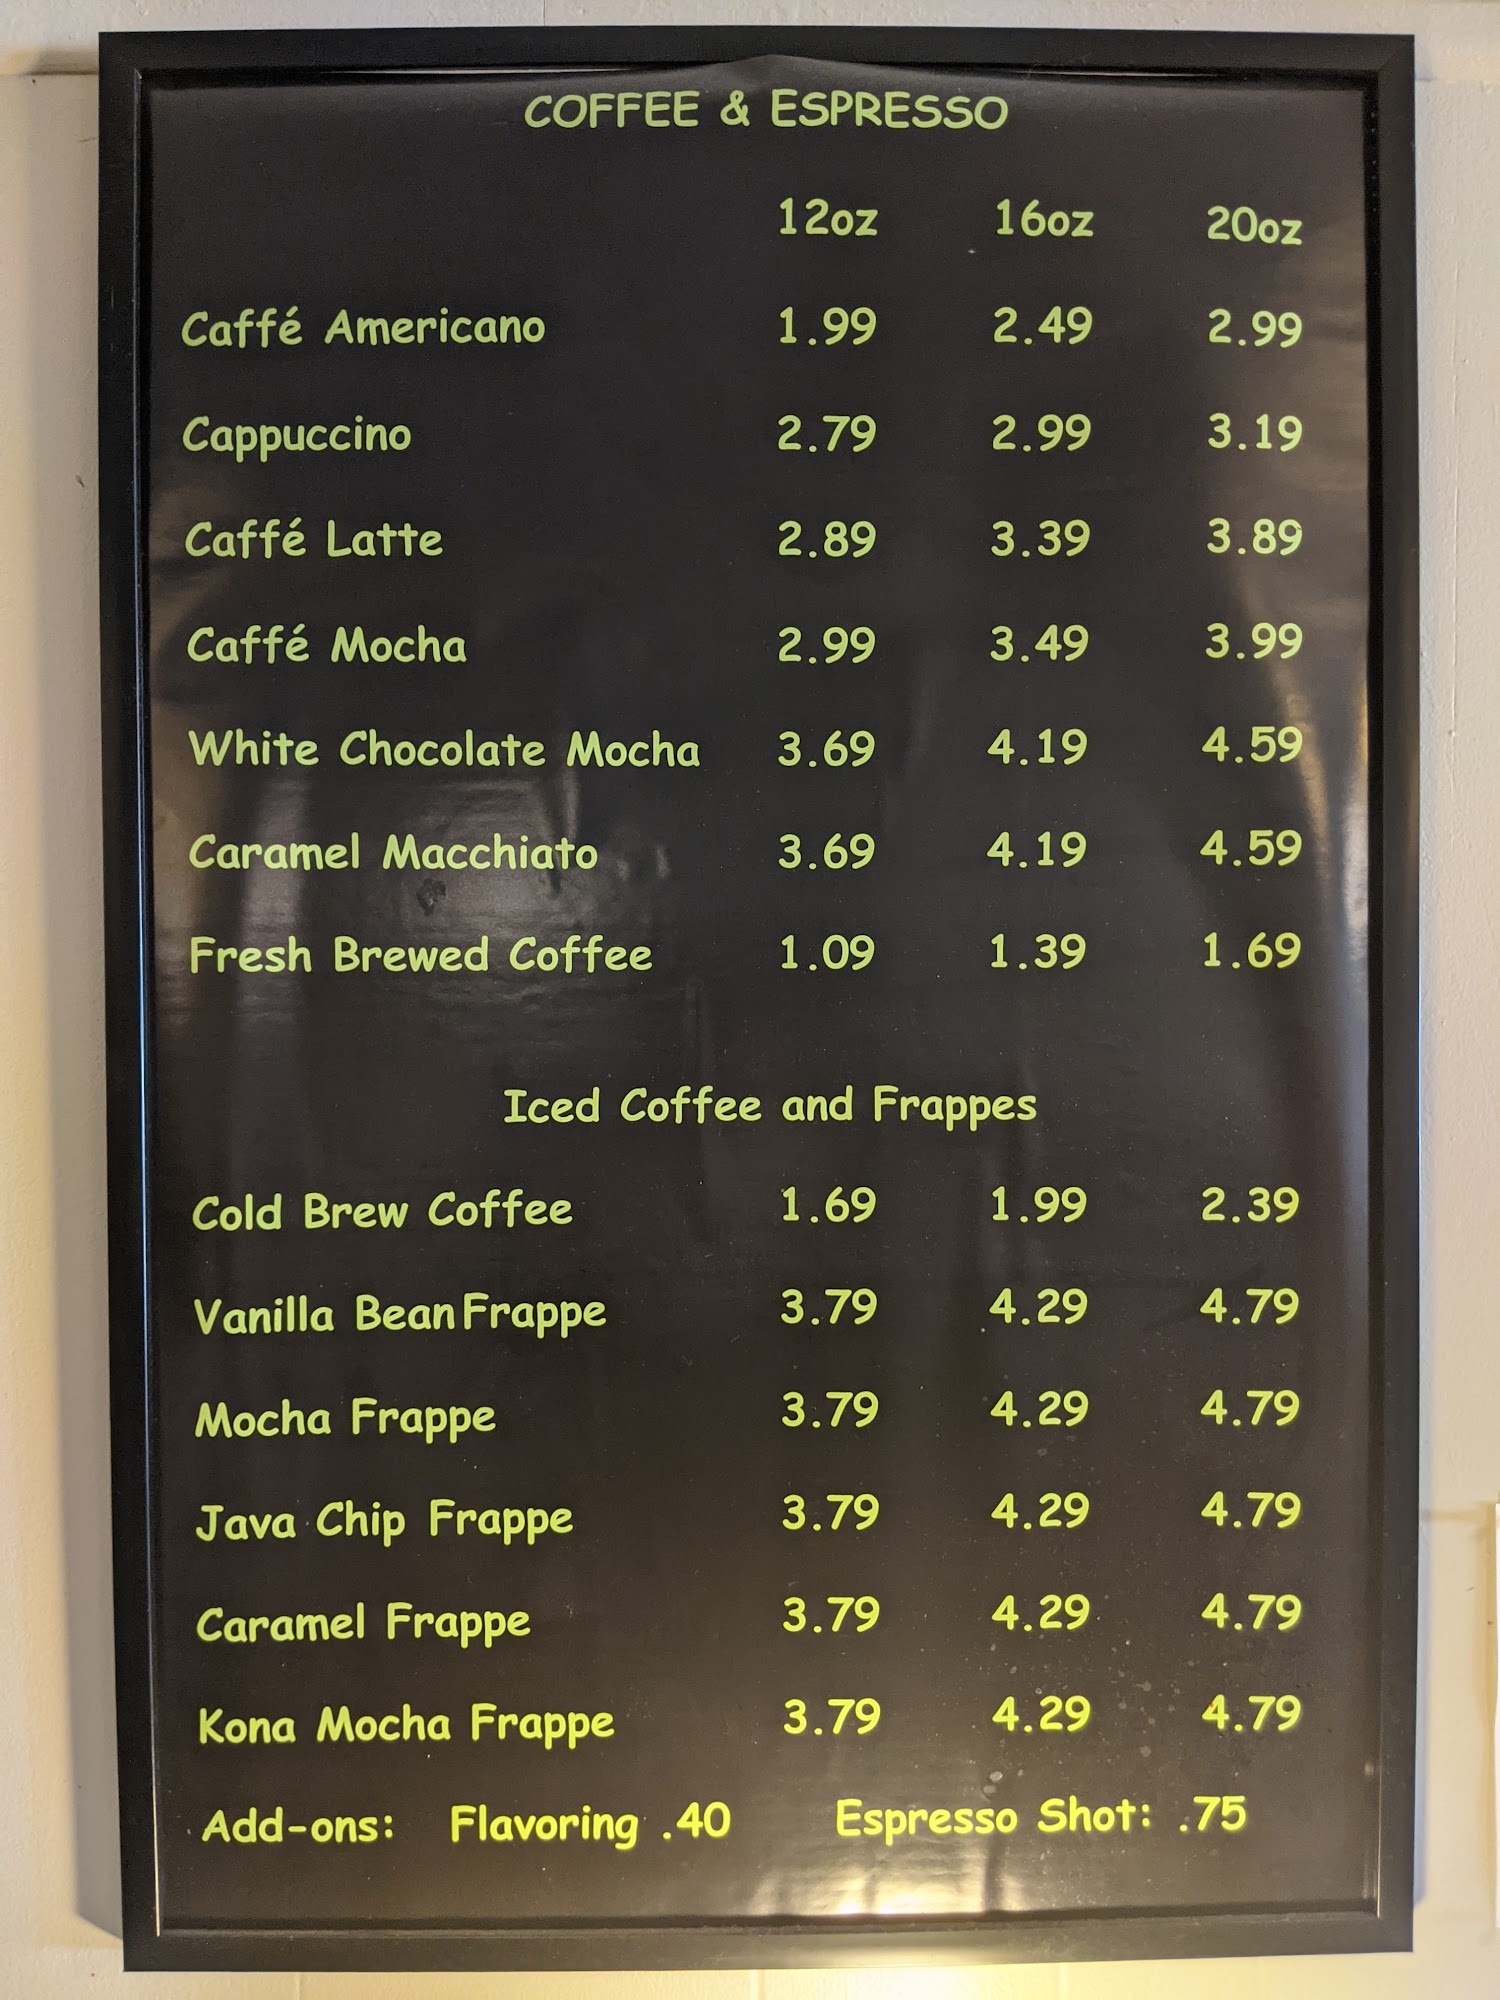 COFFEE & ESPRESSO
12oz 16oz 20oz
Caffé Americano 1.99 2.49 2.99
Cappuccino 2.79 2.99 3.19
Caffé Latte 2.89 3.39 3.89
Caffé Mocha 2.99 3.49 3.99
White Chocolate Mocha 3.69 4.19 4.59
Caramel Macchiato 3.69 4.19 4.59
Fresh Brewed Coffee 1.09 1.39 1.69
Iced Coffee and Frappes
Cold Brew Coffee 1.69 1.99 2.39
Vanilla Bean Frappe 3.79 4.29 4.79
Mocha Frappe 3.79 4.29 4.79
Java Chip Frappe 3.79 4.29 4.79
Caramel Frappe 3.79 4.29 4.79
Kona Mocha Frappe 3.79 4.29 4.79
Add-ons: Flavoring .40 Espresso Shot: .75